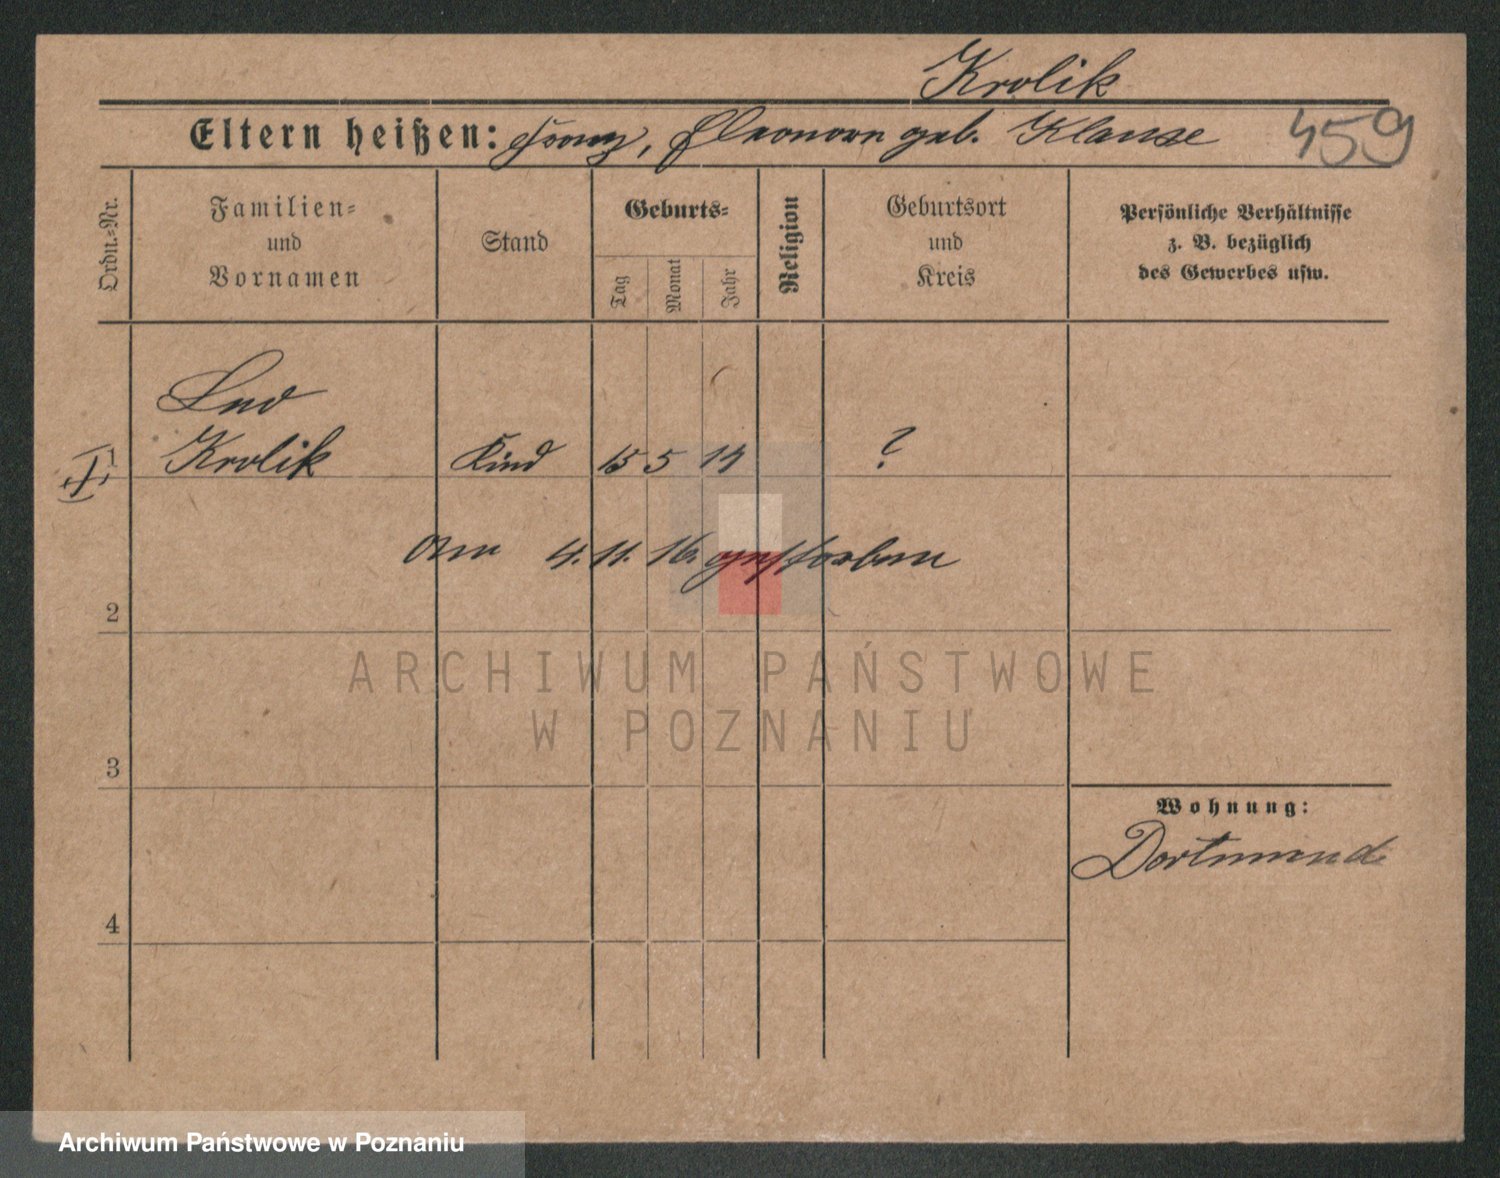 Krolik
Eltern heißen: Franz, Eleonora geb. Klause 459
Ordn.=Nr.
Familien=
und
Vornamen
Stand
Geburts=
Tag
Monat
Jahr
Religion
Geburtsort
und
Kreis
Persönliche Verhältnisse
z. B. bezüglich
des Gewerbes usw.
Leo
1 Krolik Kind 15 5 14 ?
Am 4.11.16. gestorben
2
ARCHIWUM PAŃSTWOWE
W POZNANIU
3
Wohnung:
Dortmund
4
Archiwum Państwowe w Poznaniu